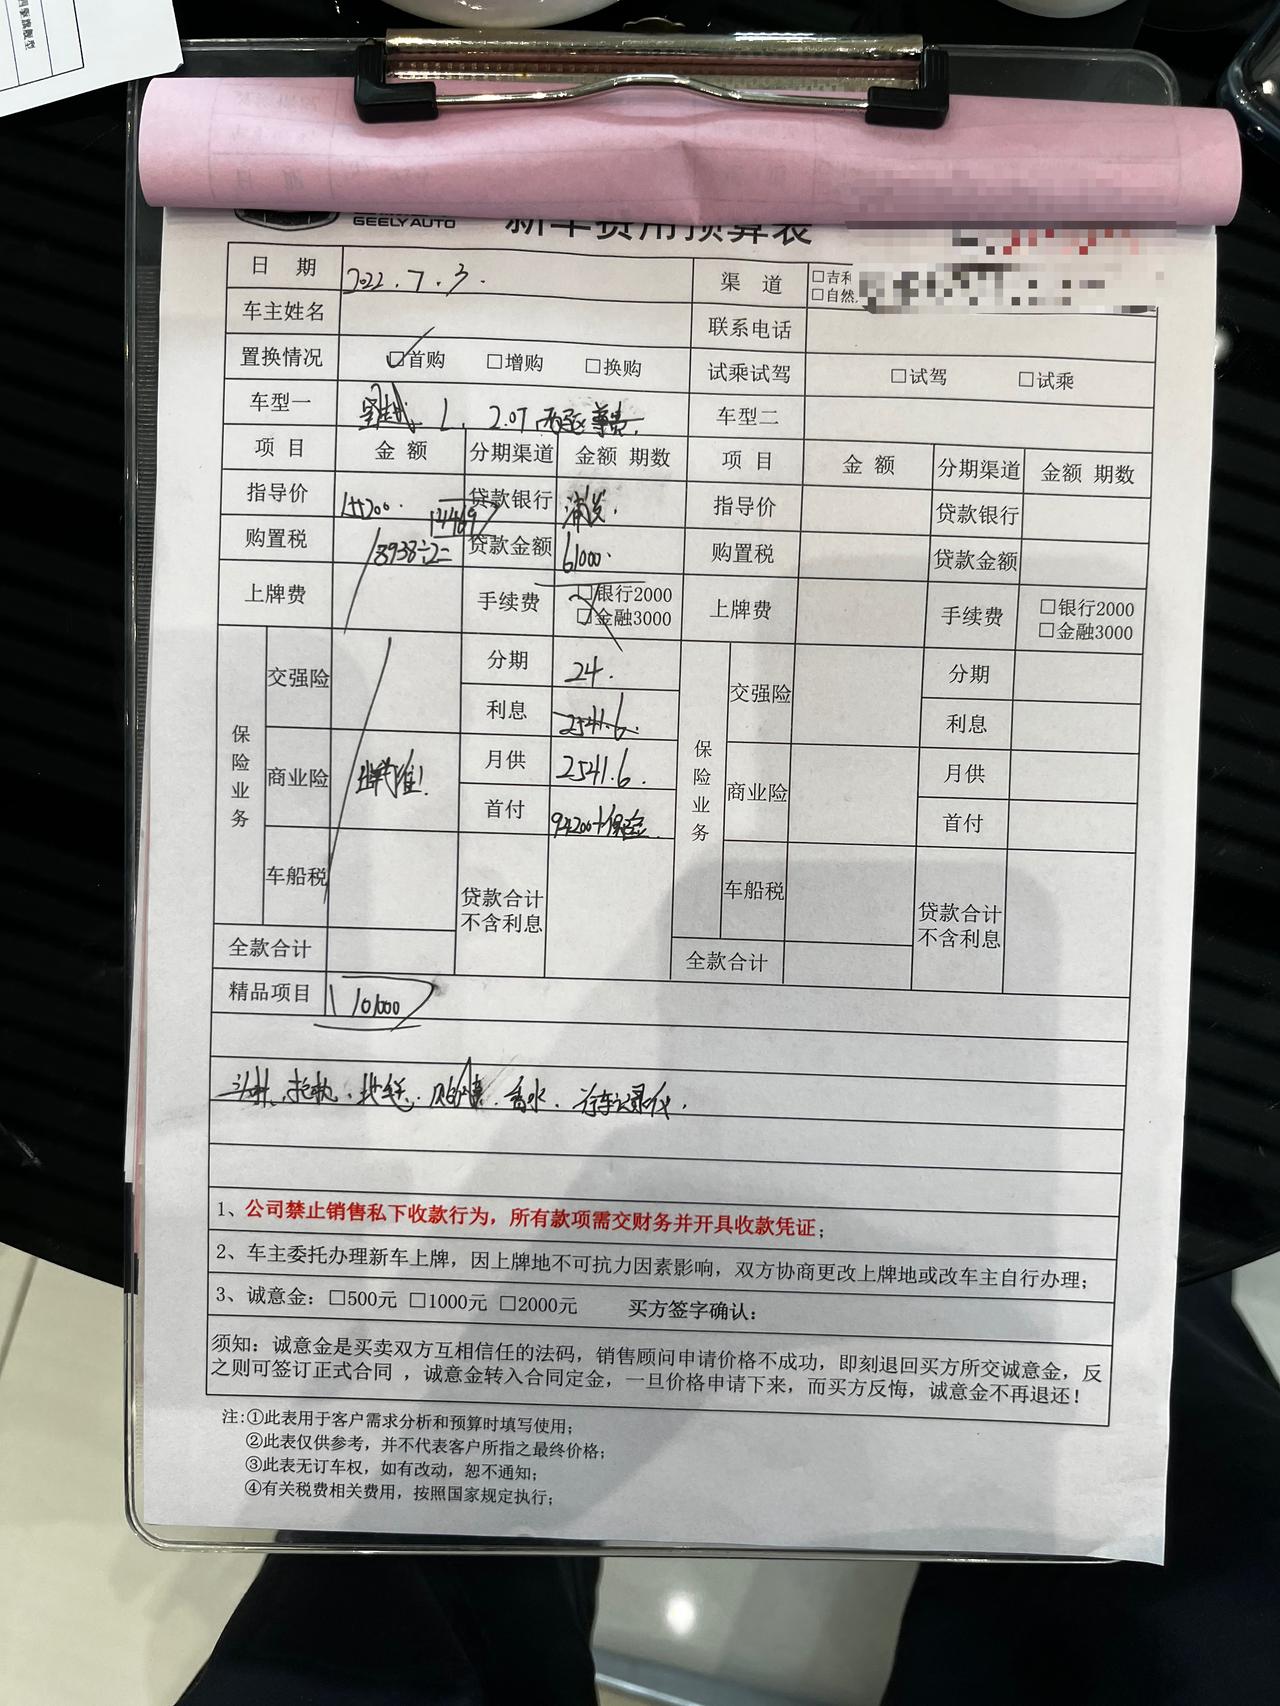 GEELY AUTO 新车费用预算表
日 期 2022.7.3. 渠 道 □吉利
□自然
车主姓名 联系电话
置换情况 □首购 □增购 □换购 试乘试驾 □试驾 □试乘
车型一 L 2.0T 两驱尊贵. 车型二
项 目 金 额 分期渠道 金额 期数 项 目 金 额 分期渠道 金额 期数
指导价 155200. 贷款银行 浦发. 指导价 贷款银行
14469
购置税 8938÷2= 贷款金额 61000. 购置税 贷款金额
上牌费 手续费 □银行2000 上牌费 手续费 □银行2000
□金融3000 □金融3000
保险业务 交强险 分期 24. 保险业务 交强险 分期
利息 2541.6. 利息
商业险 月供 2541.6. 商业险 月供
首付 94200+保险 首付
车船税 贷款合计 车船税 贷款合计
不含利息 不含利息
全款合计 全款合计
精品项目 101000
地毯. 贴膜. 香水. 行车记录仪.
1、公司禁止销售私下收款行为，所有款项需交财务并开具收款凭证；
2、车主委托办理新车上牌，因上牌地不可抗力因素影响，双方协商更改上牌地或改车主自行办理；
3、诚意金：□500元 □1000元 □2000元 买方签字确认：
须知：诚意金是买卖双方互相信任的法码，销售顾问申请价格不成功，即刻退回买方所交诚意金，反
之则可签订正式合同 ，诚意金转入合同定金，一旦价格申请下来，而买方反悔，诚意金不再退还！
注:①此表用于客户需求分析和预算时填写使用；
②此表仅供参考，并不代表客户所指之最终价格；
③此表无订车权，如有改动，恕不通知；
④有关税费相关费用，按照国家规定执行；